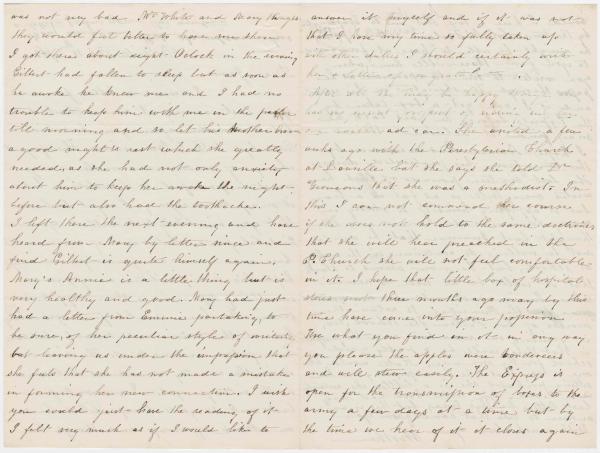 was not very bad. Mr White and Mary thought
they would feel better to have me there
I got there about eight Oclock in the evening
Gilbert had fallen to sleep but as soon as
he awoke he knew me and I had no
trouble to keep him with me in the parlor
till morning and so let his Mother have
a good night's rest which she greatly
needed, as she had not only anxiety
about him to keep her awake the night
before but also had the toothache.
I left there the next evening and have
heard from Mary by letter since and
find Gilbert is quite himself again.
Mary's Annie is a little thing but is
very healthy and good. Mary had just
had a letter from Emmie partaking, to
be sure, of her peculiar style of writing
but leaving us under the impression that
she feels that she has not made a mistake
in forming her new connection. I wish
you could just have the reading of it
I felt very much as if I would like to
answer it myself and if it was not
that I have my time so fully taken up
with other duties I should certainly write
her a letter of
may be happy
ad can. She united a few
weeks ago with the Presbyterian Church
at Danville but she says she told Dr
that she was a methodist. In
this I can not commend her course
if she does not hold to the same doctrines
that she will hear preached in the
P. Church she will not feel comfortable
in it. I hope that little box of hospital
stores sent three months ago may by this
time have come into your possession
Use what you find in it in any way
you please the apples were
and will stew easily. The Express is
open for the transmission of boxes to the
army a few days at a time but by
the time we hear of it it closes again